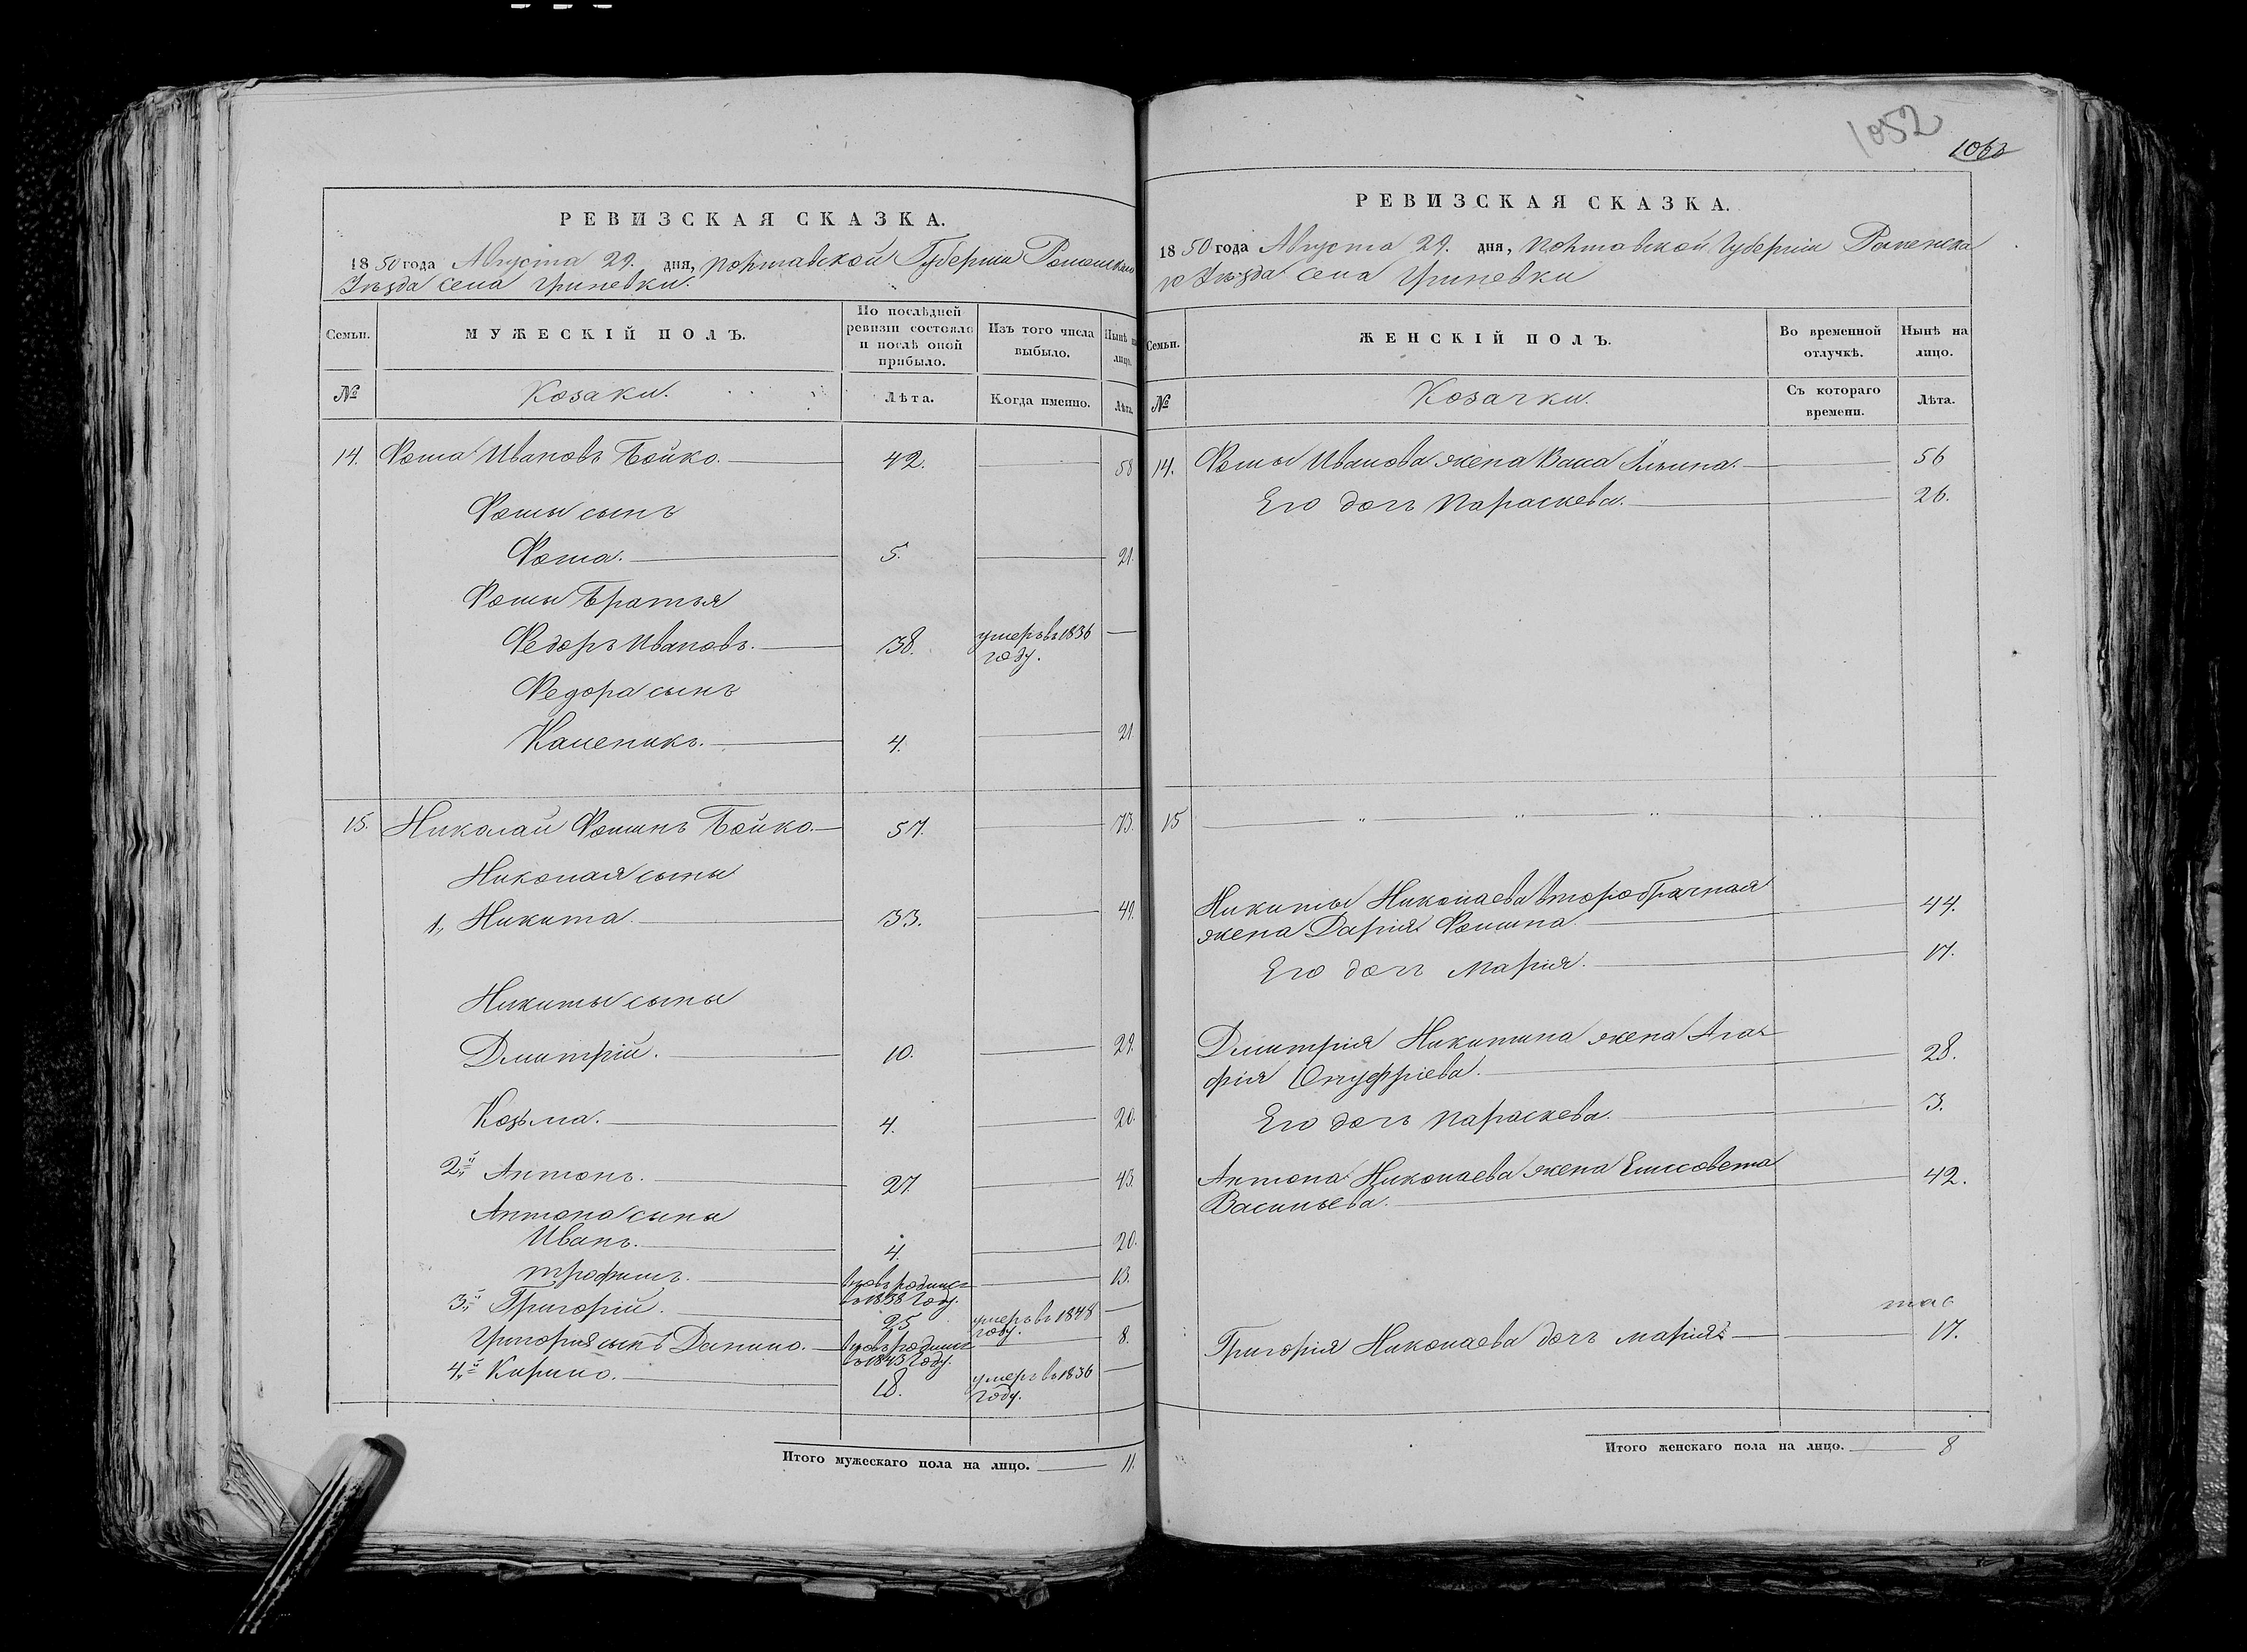 РЕВИЗСКАЯ СКАЗКА.
1850 года Августа 29. дня, Полтавской Губерніи Роменскаго
Уѣзда села Гриневки.
Семьи.
МУЖЕСКІЙ ПОЛЪ.
По послѣдней ревизіи состояло и послѣ оной прибыло.
Изъ того числа выбыло.
Нынѣ на лицо.
№
Козаки.
Лѣта.
Когда именно.
Лѣта.
14. Фома Ивановъ Бойко. 42. 58
Фомы сынъ
Фома. 5. 21.
Фомы братья
Федоръ Ивановъ. 38. умеръ въ 1836 году.
Федора сынъ
Каленикъ. 4. 21
15. Николай Фоминъ Бойко. 57. 73.
Николая сыны
1, Никита. 33. 49.
Никиты сыны
Дмитрій. 10. 29.
Козьма. 4. 20.
2й Антонъ. 27. 43.
Антона сыны
Иванъ. 4. 20.
Трофимъ. вновь родился въ 1838 году. 13.
3й Григорій. 25 умеръ въ 1848 году.
Григорія сынъ Данило. вновь родился въ 1843 году. 8.
4й Кирило. 18. умеръ въ 1836 году.
Итого мужескаго пола на лицо. 11.
1052
1063
РЕВИЗСКАЯ СКАЗКА.
1850 года Августа 29. дня, Полтавской Губерніи Роменска
го Уѣзда села Гриневки
Семьи.
ЖЕНСКІЙ ПОЛЪ.
Во временной отлучкѣ.
Нынѣ на лицо.
№
Козачки.
Съ котораго времени.
Лѣта.
14. Фомы Иванова жена Васа 56
Его дочь Параскева. 26.
15 " " " "
Никиты Николаева второбрачная
жена Дарія Фомина. 44.
Его дочь Марія. 17.
Дмитрія Никитина жена Ага
фія Онуфріева. 28.
Его дочь Параскева. 3.
Антона Николаева жена Елисовета
Васильева. 42.
Григорія Николаева дочь Марія 17.
Итого женскаго пола на лицо. 8